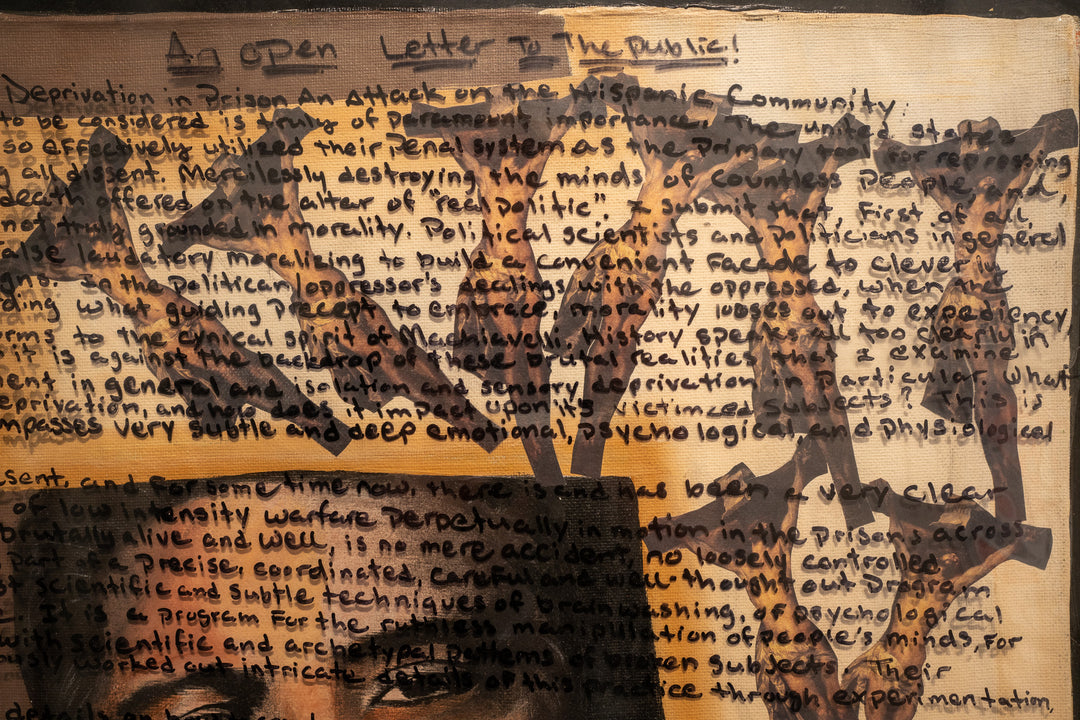 An open Letter To The public!
Deprivation in Prison An Attack on the Hispanic Community
to be considered is truly of paramount importance. The united states
so effectively utilized their Penal system as the primary tool for repressing
g all dissent. Mercilessly destroying the minds of countless People, and,
death offered on the alter of "real politic". I submit that, First of all
not truly grounded in morality. Political scientists and Politicians in general
alse laudatory moralizing to build a convenient Facade to cleverly
gns. In the Political oppressor's dealings with the oppressed, when the
ding what guiding Precept to embrace, morality looses out to expediency
orms to the cynical spirit of Machiavelli. History speaks all too clearly in
it is against the backdrop of these brutal realities that I examine
ent in general and isolation and sensory deprivation in Particular. What
eprivation, and how does it impact upon its victimzed subjects? This is
mpasses very subtle and deep emotional, psychological and physiological
esent, and For some time now, there is and has been a very clear
of low Intensity warfare Perpetually in motion in the Prisons across
brutally alive and well, is no mere accident, no loosely controlled
part of a Precise, coordinated, careful and well thought out Program
st scientific and subtle techniques of brainwashing, of psychological
It is a program For the ruthless manipulation of people's minds, For
with scientific and archetypal patterns of broken subjects. Their
ously worked out intricate details of this practice through experimentation,
details an